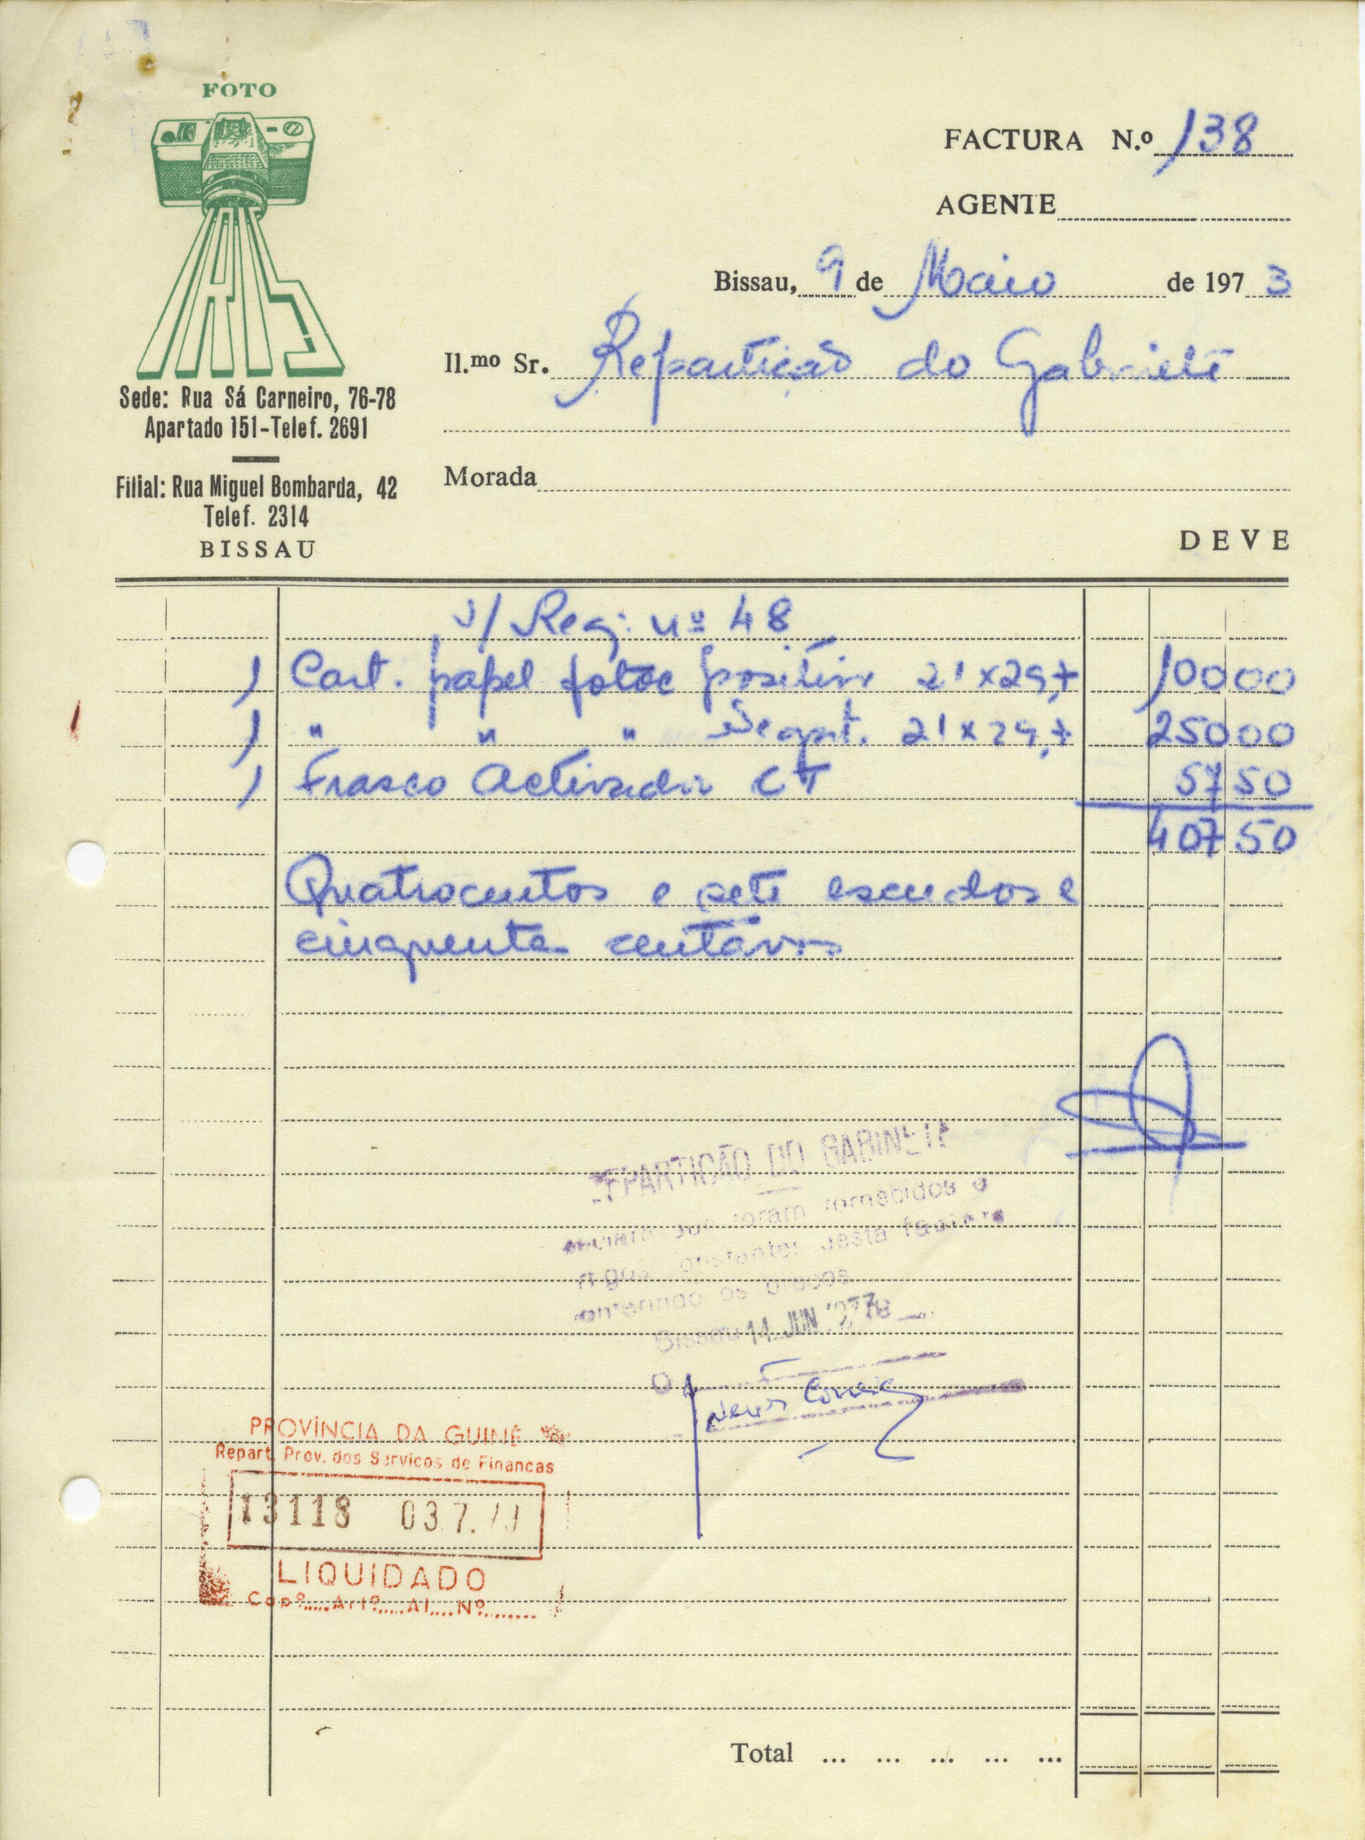 FOTO
IRIS
Sede: Rua Sá Carneiro, 76-78
Apartado 151-Telef. 2691
Filial: Rua Miguel Bombarda, 42
Telef. 2314
BISSAU
FACTURA N.º 138
AGENTE
Bissau, 9 de Maio de 1973
Il.mo Sr. Repartição do Gabinete
Morada
DEVE
/ Req. nº 48
1 Cart. papel fotoc positivo 21x29,7 100 00
1 " " " Negat. 21x29,7 250 00
1 Frasco Activador CT 57 50
407 50
Quatrocentos e sete escudos e
cinquenta centavos
REPARTIÇÃO DO GABINETE
foram fornecidos
desta factura
os preços
Bissau 14 JUN.
O
PROVÍNCIA DA GUINÉ
Repart. Prov. dos Serviços de Finanças
13118 03.7.
LIQUIDADO
Capº.....Artº.....Al....Nº.......
Total ... ... ... ... ...